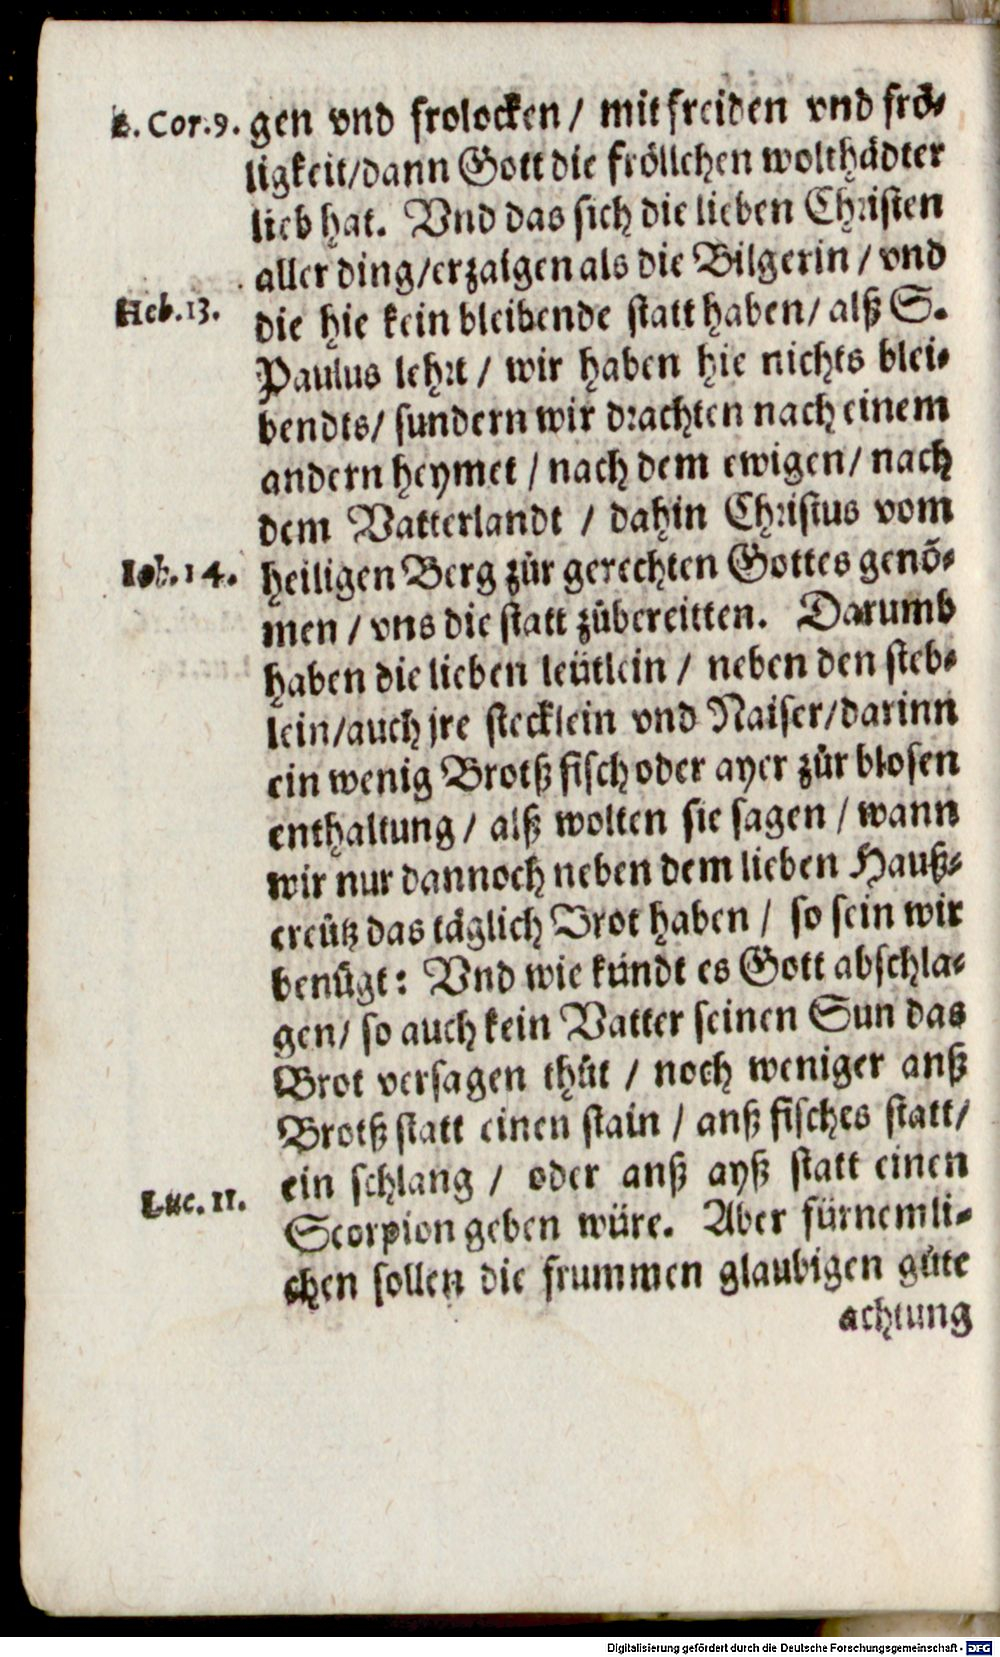 2. Cor. 9. gen vnd frolocken / mit freiden vnd frö-
ligkeit/dann Gott die fröllchen wolthädter
lieb hat. Vnd das sich die lieben Christen
aller ding/erzaigen als die Bilgerin / vnd
Heb. 13. die hie kein bleibende statt haben/ alß S.
Paulus lehrt / wir haben hie nichts blei-
bendts/ sundern wir drachten nach einem
andern heymet / nach dem ewigen/ nach
dem Vatterlandt / dahin Christus vom
Ioh. 14. heiligen Berg zůr gerechten Gottes genõ-
men / vns die statt zůbereitten. Darumb
haben die lieben leütlein / neben den steb-
lein/auch jre stecklein vnd Raiser/darinn
ein wenig Brotß fisch oder ayer zůr blosen
enthaltung / alß wolten sie sagen / wann
wir nur dannoch neben dem lieben Hauß-
creütz das täglich Brot haben / so sein wir
benůgt: Vnd wie kündt es Gott abschla-
gen/ so auch kein Vatter seinen Sun das
Brot versagen thůt / noch weniger anß
Brotß statt einen stain / anß fisches statt/
ein schlang / oder anß ayß statt einen
Luc. 11. Scorpion geben würe. Aber fürnemli-
chen sollen die frummen glaubigen gůte
achtung
Digitalisierung gefördert durch die Deutsche Forschungsgemeinschaft - DFG